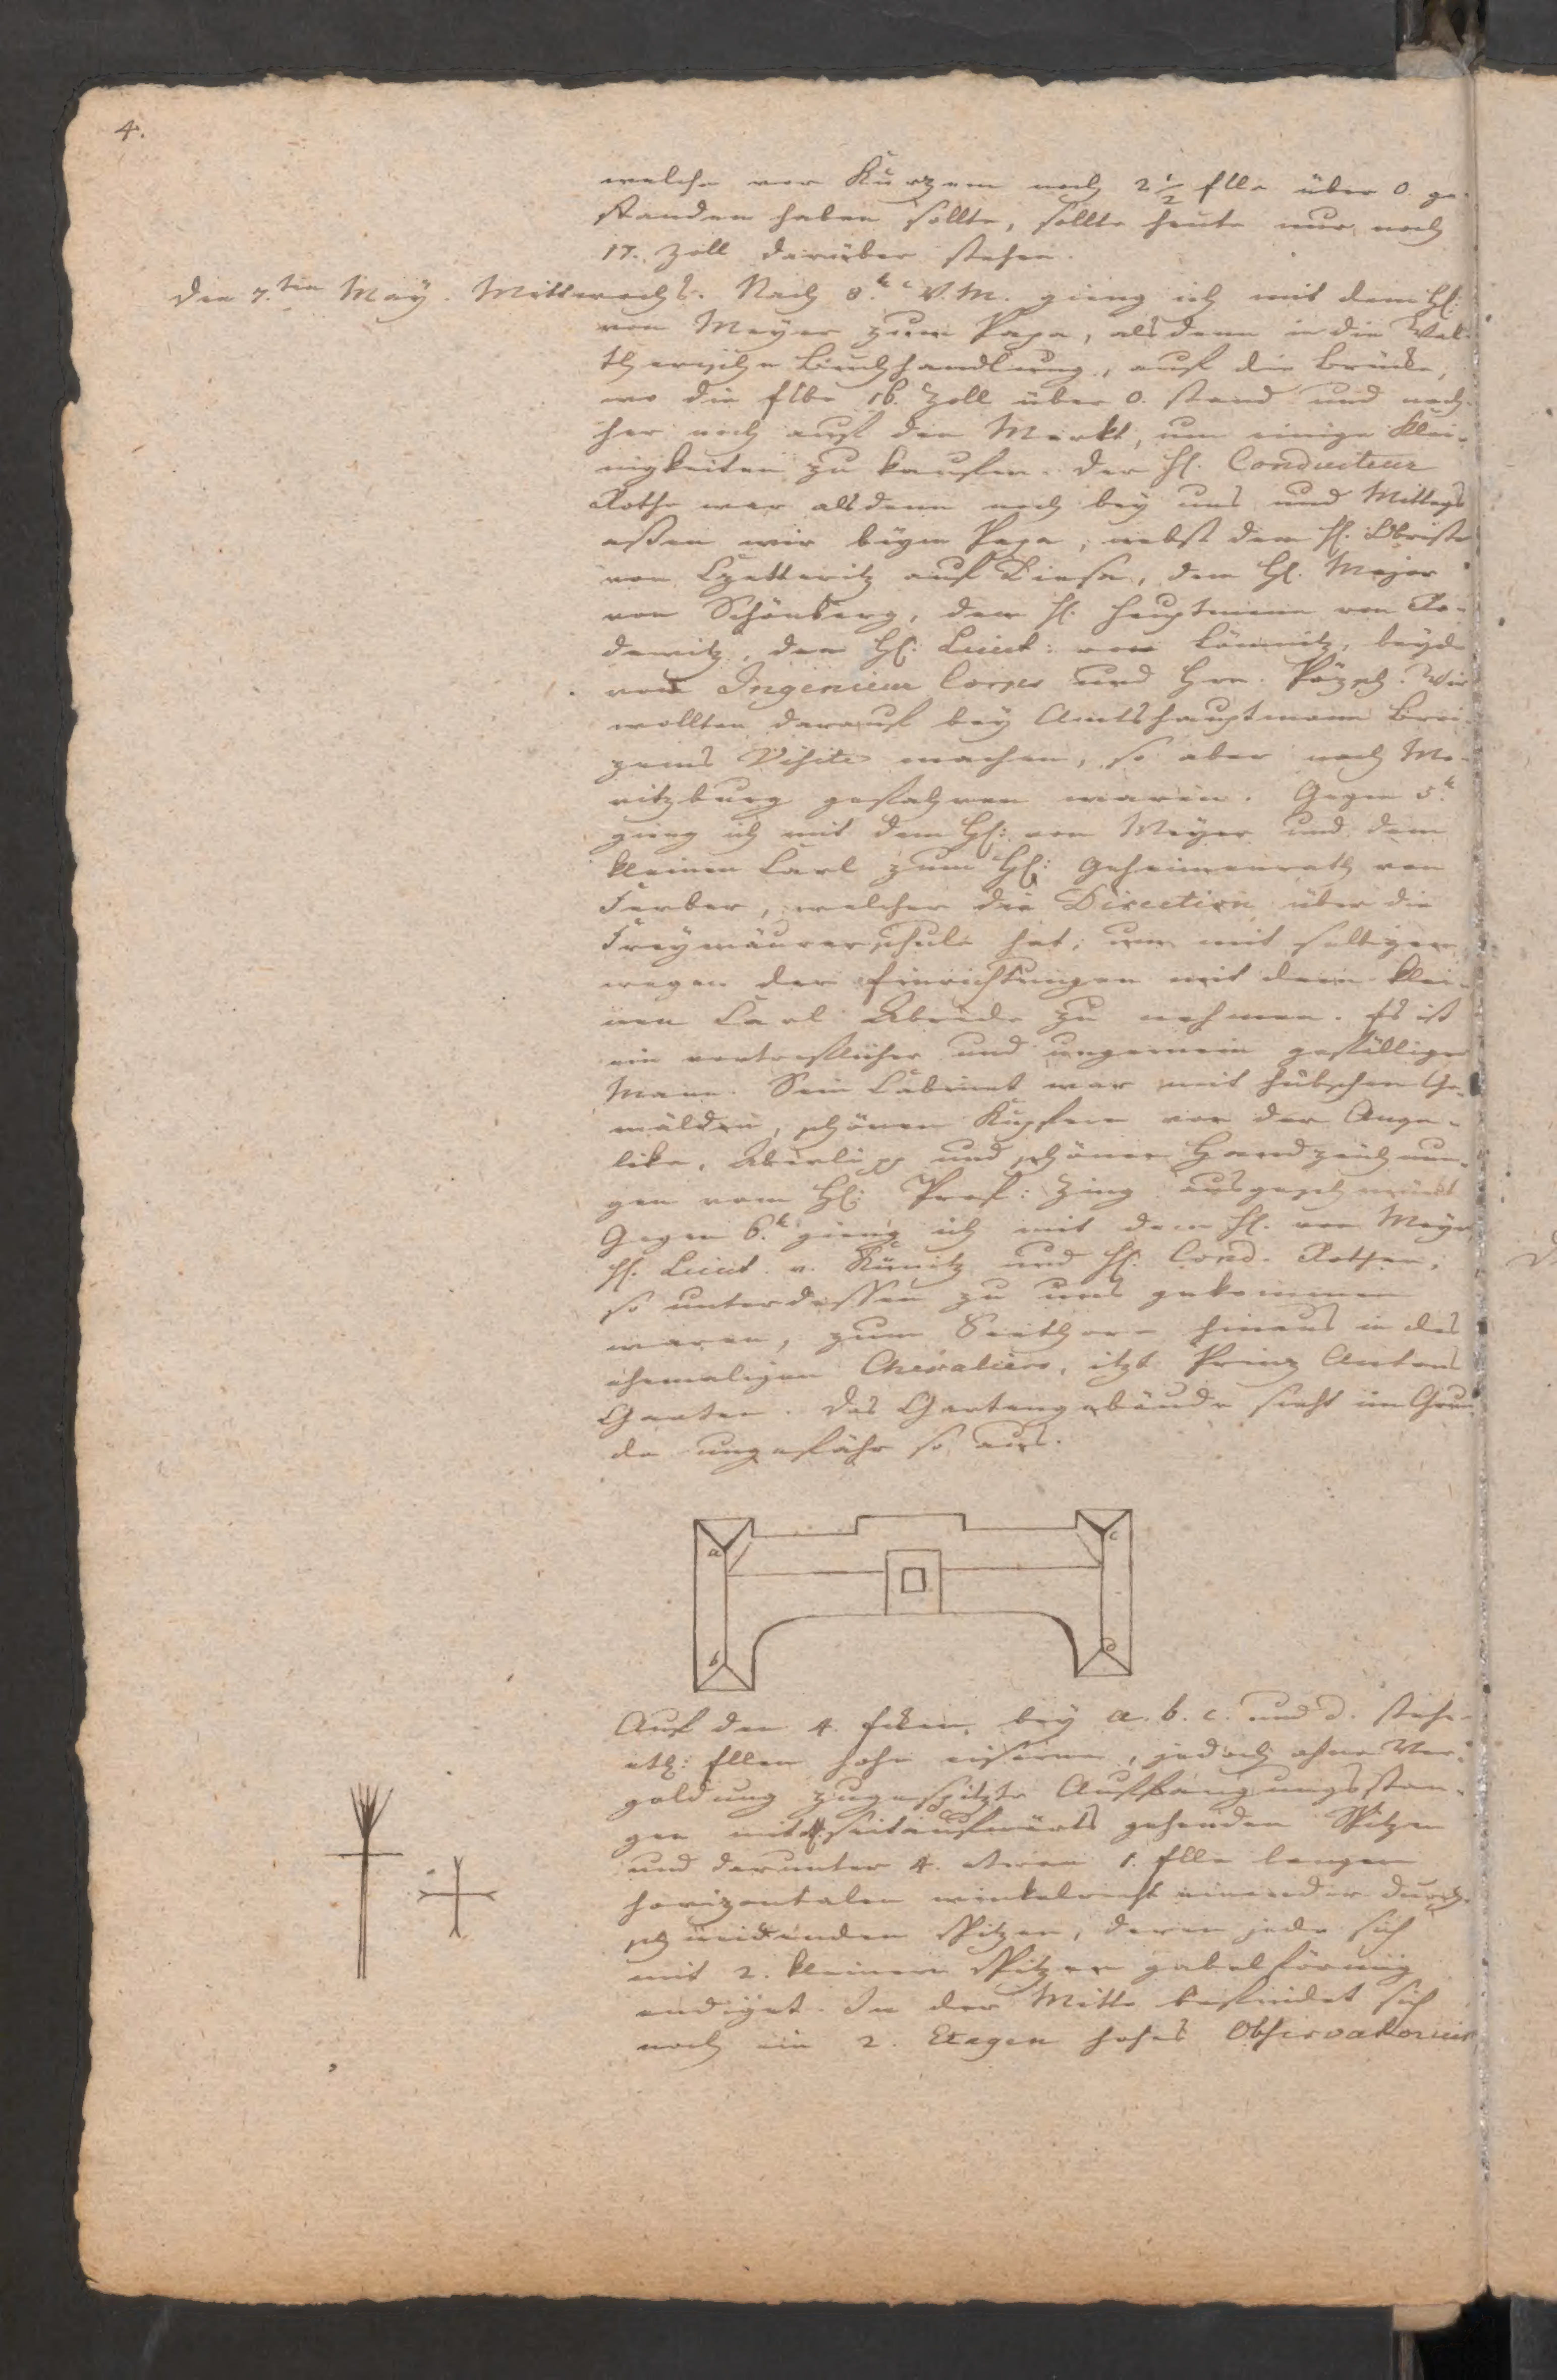 4.
welche vor Kurzem noch 2 1/2 Elle über 0. ge-
standen haben sollte, sollte heute nur noch
17. Zoll darüber stehen.
Den 7.ten May. Mittwochs. Nach 8.h V.M. gieng ich mit dem H:
von Meyer zum Papa, alsdenn in die Wal-
therische Buchhandlung, auf die Brücke,
wo die Elbe 16. Zoll über 0. stand und nach-
her noch auf den Markt, um einige Klei-
nigkeiten zu kaufen. Der H. Conducteur
Rothe war alsdenn noch bey uns und Mittags
aßen wir beym Papa, nebst dem H. Obrist
von auf Riesa, dem H. Major
von Schönberg, dem H. Hauptmann von Ro-
dewitz, dem H: Lieut: von beyde
vom Ingenieur Corps und Hrn. Wir
wollten darauf bey Amtshauptmann
Visite machen, so aber nach Mo-
ritzburg gefahren waren. Gegen 5.h
gieng ich mit dem H: von Meyer und dem
kleinen Carl zum H: Geheimenrath von
Ferber, welcher die Direction über die
Freymäurerschule hat, um mit selbigem
wegen der Einrichtungen mit dem klei-
nen Carl Abrede zu nehmen. Es ist
ein vortreflicher und ungemein gefälliger
Mann. Sein Cabinet war mit hübschen Ge-
mälden, schönen Kupfern von der Ange-
lika, Aberli pp und schönen Handzeichnun-
gen vom H: Prof: Zing ausgeschmückt
Gegen 6.h gieng ich mit dem H. von Meyer,
H. Lieut. v. und H. Cond. Rothen,
so unterdessen zu uns gekommen
waren, zum Seethore hinaus in des
ehemaligen Chevaliers, itzt Prinz Antons
Garten. Das Gartengebäude sieht im Grun-
de ungefähr so aus.
a
c
b
d
Auf den 4. Ecken, bey a. b. c. und d. stehen
etl: Ellen hohe eiserne, jedoch ohne Ver-
goldung zugespitzte Auffangungsstan-
gen mit seitaufwärts gehenden Spitzen
und darunter 4. etwan 1. Elle langen
horizontalen winkelrecht einander durch-
schneidenden Spitzen, deren jede sich
mit 2. kleinern Spitzen gabelförmig
endiget. In der Mitte befindet sich
noch ein 2. Etagen hohes Observatorium